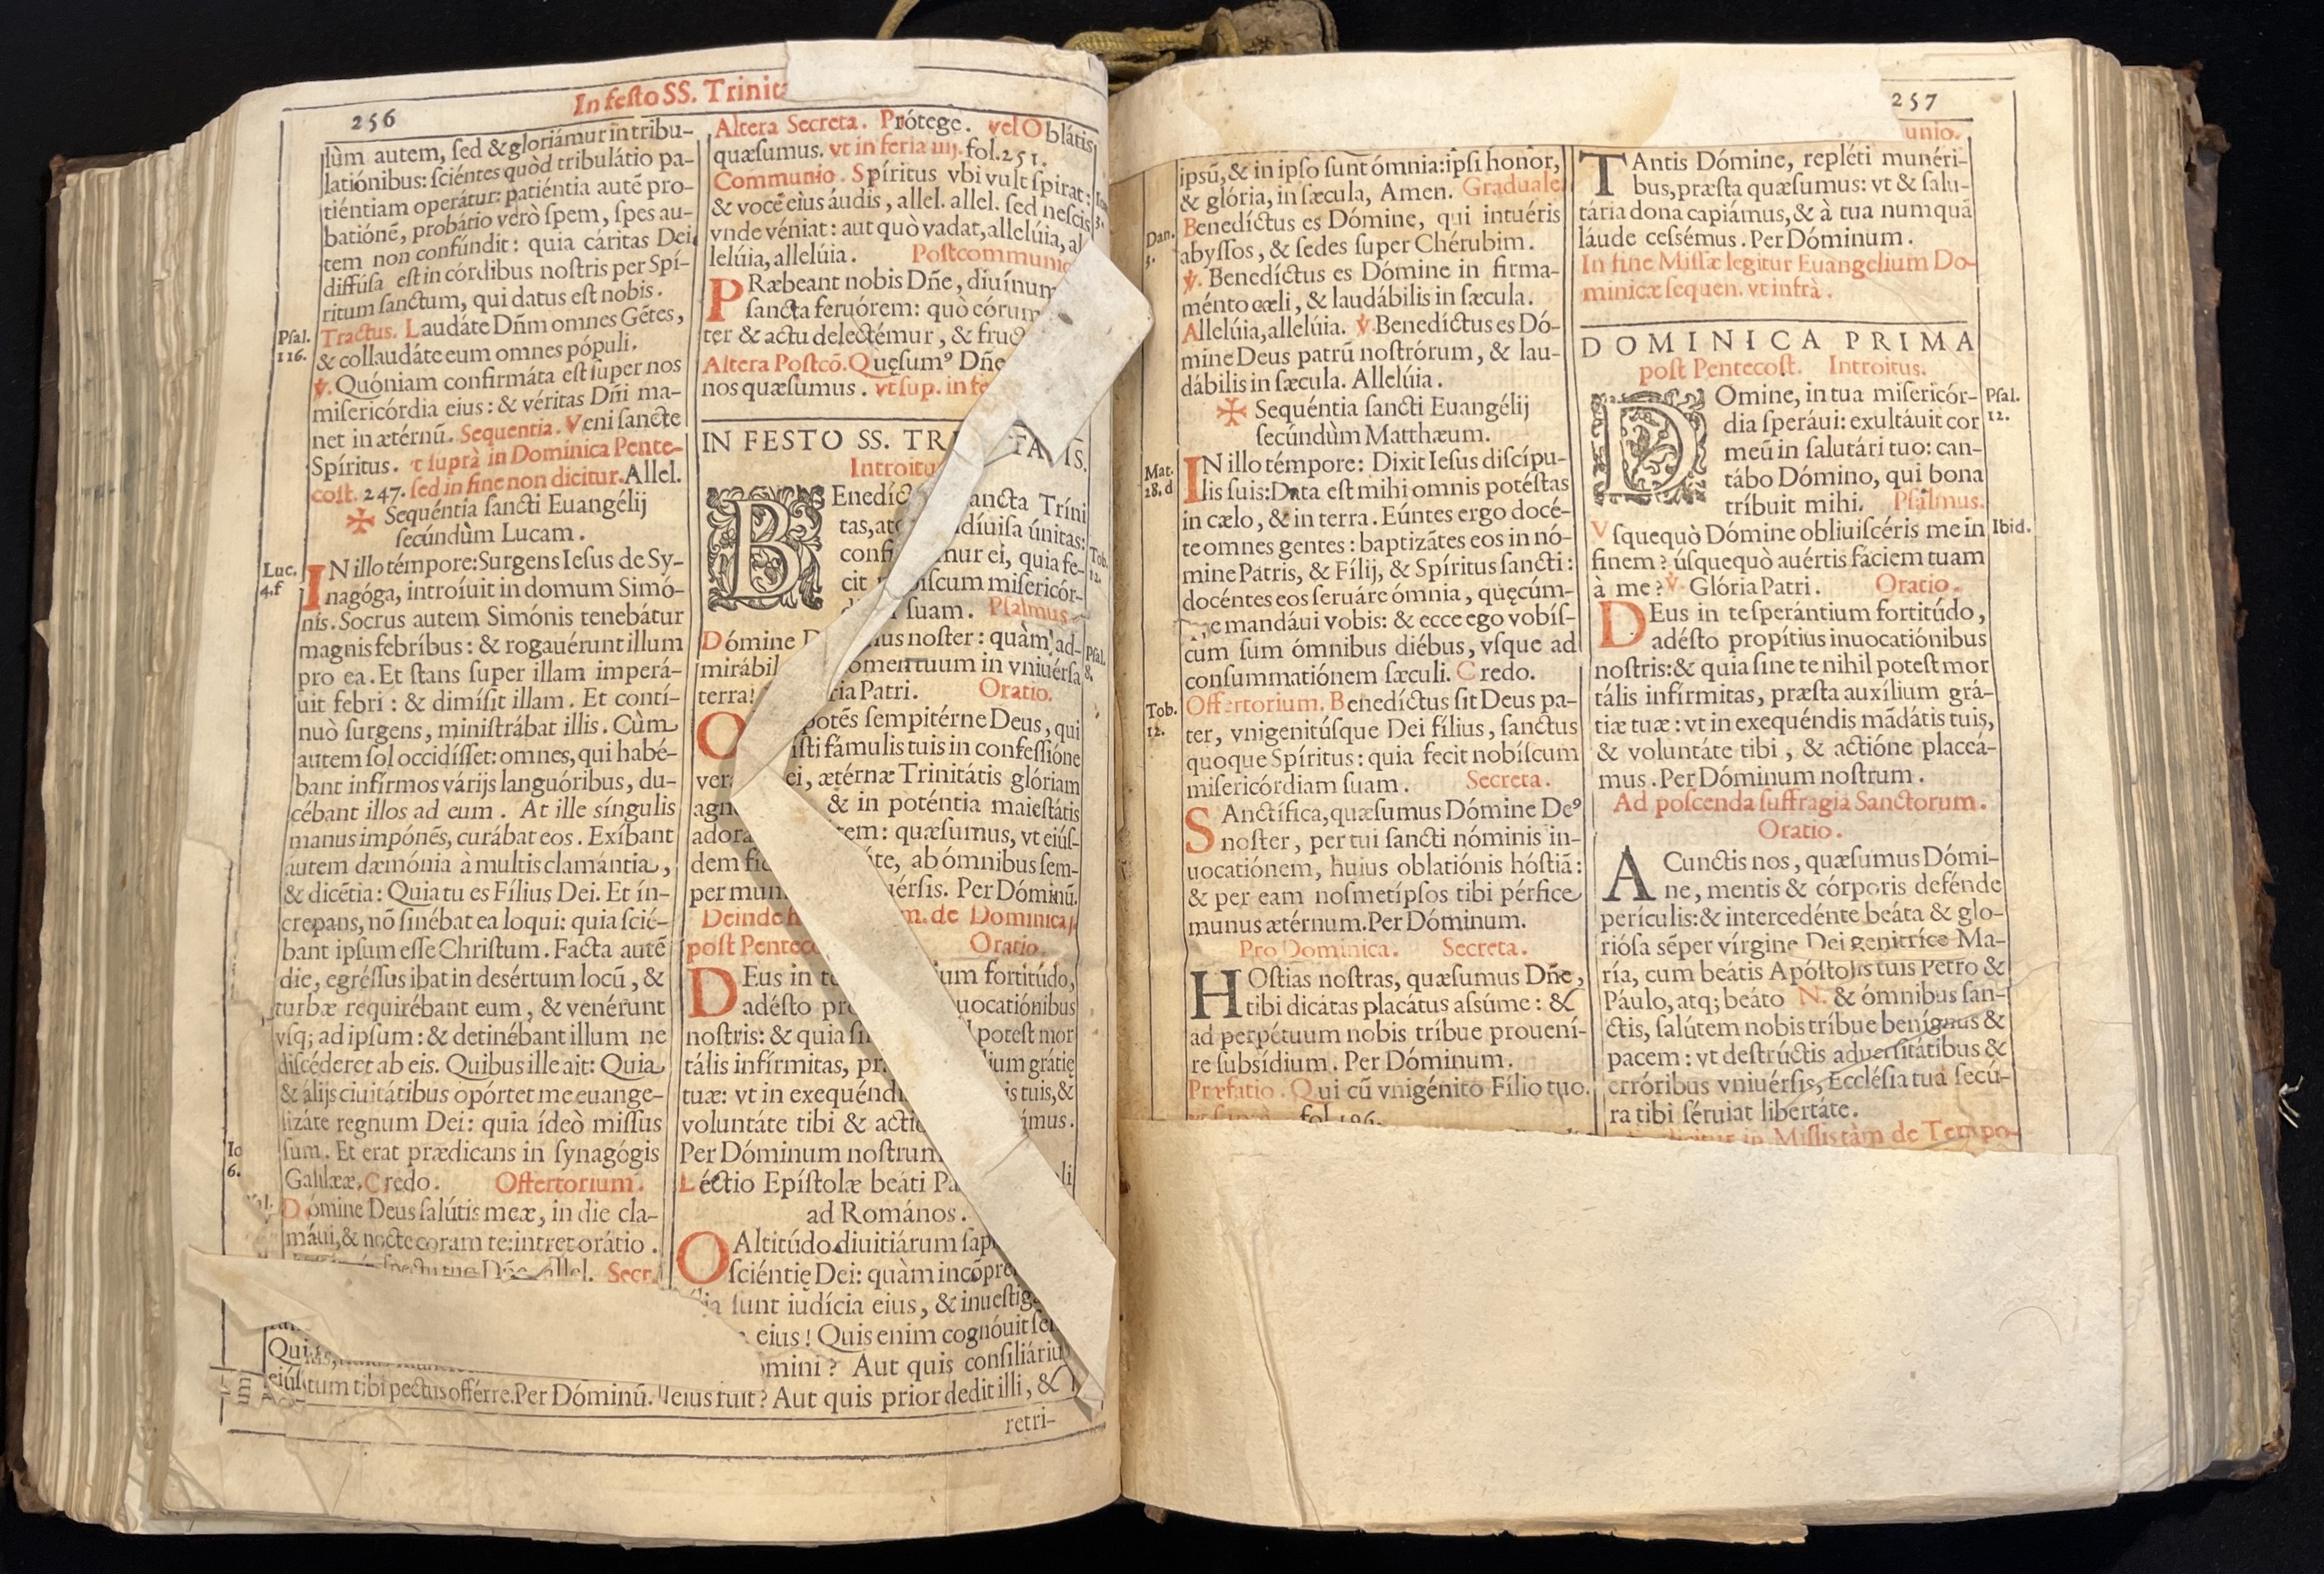 256
In festo SS. Trinit
lùm autem, sed & gloriámur in tribu-
latiónibus: sciéntes quòd tribulátio pa-
tiéntiam operátur: patiéntia autē pro-
batiónē, probátio verò spem, spes au-
tem non confúndit: quia cáritas Dei
diffúsa est in córdibus nostris per Spí-
ritum sanctum, qui datus est nobis.
Psal. 116.
Tractus. Laudáte Dñm omnes Gētes,
& collaudáte eum omnes pópuli.
℣. Quóniam confirmáta est super nos
misericórdia eius: & véritas Dñi ma-
net in ætérnũ. Sequentia. Veni sancte
Spíritus. vt suprà in Dominica Pente-
cost. 247. sed in fine non dicitur. Allel.
✠ Sequéntia sancti Euangélij
secúndùm Lucam.
Luc. 4.f
IN illo témpore: Surgens Iesus de Sy-
nagóga, introíuit in domum Simó-
nis. Socrus autem Simónis tenebátur
magnis febríbus: & rogauérunt illum
pro ea. Et stans super illam imperá-
uit febri: & dimísit illam. Et contí-
nuò surgens, ministrábat illis. Cùm
autem sol occidísset: omnes, qui habé-
bant infírmos várijs languóribus, du-
cébant illos ad eum. At ille síngulis
manus impónēs, curábat eos. Exíbant
autem dæmónia à multis clamántia,
& dicētia: Quia tu es Fílius Dei. Et ín-
crepans, nō sinébat ea loqui: quia scié-
bant ipsum esse Christum. Facta autē
die, egréssus ibat in desértum locũ, &
turbæ requirébant eum, & venérunt
vsq; ad ipsum: & detinébant illum ne
discéderet ab eis. Quibus ille ait: Quia
& álijs ciuitátibus opórtet me euange-
lizáte regnum Dei: quia ídeò missus
Io 6.
sum. Et erat prædicans in synagógis
Galilææ. Credo. Offertorium.
Dómine Deus salútis meæ, in die cla-
máui, & nocte coram te: intret orátio.
Dñe allel. Secr
Qui
eiús tum tibi pectus offérre. Per Dóminũ.
Altera Secreta. Prótege. vel Oblátis
quæsumus. vt in feria iiij. fol. 251.
Communio. Spíritus vbi vult spirat:
& vocē eius áudis, allel. allel. sed nescis
vnde véniat: aut quò vadat, allelúia, al
lelúia, allelúia. Postcommunio
PRæbeant nobis Dñe, diuínum
sancta feruórem: quò córum
ter & actu delectémur, & fruc
Altera Postcō. Quęsumꝰ Dñe
nos quæsumus. vt sup. in fe
IN FESTO SS. TRI TATIS.
Introitu
BEnedíc ancta Tríni
tas, atq díuisa únitas:
confi mur ei, quia fe-
Tob. 12.
cit biscum misericór-
suam. Psalmus
Dómine D nus noster: quàm ad-
Psal. 8.
mirábil omen tuum in vniuérsa
terra! ria Patri. Oratio.
O potēs sempitérne Deus, qui
isti fámulis tuis in confessióne
ver ei, ætérnæ Trinitátis glóriam
agn & in poténtia maiestátis
adora tem: quæsumus, vt eiús-
dem fid áte, ab ómnibus sem-
per mun uérsis. Per Dóminũ.
Deinde m. de Dominica j.
post Penteco Oratio.
DEus in te ium fortitúdo,
adésto pro uocatiónibus
nostris: & quia si potest mor
tális infírmitas, pr lium grátię
tuæ: vt in exequénd is tuis, &
voluntáte tibi & actió ámus.
Per Dóminum nostrum.
Léctio Epístolæ beáti Pa li
ad Romános.
O Altitúdo diuitiárum sap
sciéntię Dei: quàm incōpre
ília sunt iudícia eius, & inuestig
eius! Quis enim cognóuit sen
omini? Aut quis consiliáriu
eius fuit? Aut quis prior dedit illi, &
retri-
257
ipsũ, & in ipso sunt ómnia: ipsi honor,
& glória, in sæcula, Amen. Graduale
Dan. 3.
Benedíctus es Dómine, qui intuéris
abyssos, & sedes super Chérubim.
℣. Benedíctus es Dómine in firma-
ménto cæli, & laudábilis in sæcula.
Allelúia, allelúia. ℣. Benedíctus es Dó-
mine Deus patrũ nostrórum, & lau-
dábilis in sæcula. Allelúia.
✠ Sequéntia sancti Euangélij
secúndùm Matthæum.
Mat. 28. d
IN illo témpore: Dixit Iesus discípu-
lis suis: Data est mihi omnis potéstas
in cælo, & in terra. Eúntes ergo docé-
te omnes gentes: baptizātes eos in nó-
mine Patris, & Fílij, & Spíritus sancti:
docéntes eos seruáre ómnia, quęcúm-
e mandáui vobis: & ecce ego vobís-
cum sum ómnibus diébus, vsque ad
consummatiónem sæculi. Credo.
Tob. 12.
Offertorium. Benedíctus sit Deus pa-
ter, vnigenitúsque Dei fílius, sanctus
quoque Spíritus: quia fecit nobíscum
misericórdiam suam. Secreta.
SAnctífica, quæsumus Dómine Deꝰ
noster, per tui sancti nóminis in-
uocatiónem, huius oblatiónis hóstiā:
& per eam nosmetípsos tibi pérfice
munus ætérnum. Per Dóminum.
Pro Dominica. Secreta.
HOstias nostras, quæsumus Dñe,
tibi dicátas placátus assúme: &
ad perpétuum nobis tríbue prouení-
re subsídium. Per Dóminum.
Præfatio. Qui cũ vnigénito Fílio tuo.
fol. 196.
unio.
TAntis Dómine, repléti munéri-
bus, præsta quæsumus: vt & salu-
tária dona capiámus, & à tua numquā
láude cessémus. Per Dóminum.
In fine Missæ legitur Euangelium Do-
minicæ sequen. vt infrà.
DOMINICA PRIMA
post Pentecost. Introitus.
DOmine, in tua misericór-
Psal. 12.
dia speráui: exultáuit cor
meũ in salutári tuo: can-
tábo Dómino, qui bona
tríbuit mihi. Psalmus.
Vsquequò Dómine obliuiscéris me in
Ibid.
finem? úsquequò auértis fáciem tuam
à me? ℣. Glória Patri. Oratio.
DEus in te sperántium fortitúdo,
adésto propítius inuocatiónibus
nostris: & quia sine te nihil potest mor
tális infírmitas, præsta auxílium grá-
tiæ tuæ: vt in exequéndis mādátis tuis,
& voluntáte tibi, & actióne placeá-
mus. Per Dóminum nostrum.
Ad poscenda suffragia Sanctorum.
Oratio.
A Cunctis nos, quæsumus Dómi-
ne, mentis & córporis defénde
perículis: & intercedénte beáta & glo-
riósa sēper vírgine Dei genitríce Ma-
ría, cum beátis Apóstolis tuis Petro &
Páulo, atq; beáto N. & ómnibus san-
ctis, salútem nobis tríbue benígnus &
pacem: vt destrúctis aduersitátibus &
erróribus vniuérsis, Ecclésia tua secú-
ra tibi séruiat libertáte.
dicitur in Missis tàm de Tempo-